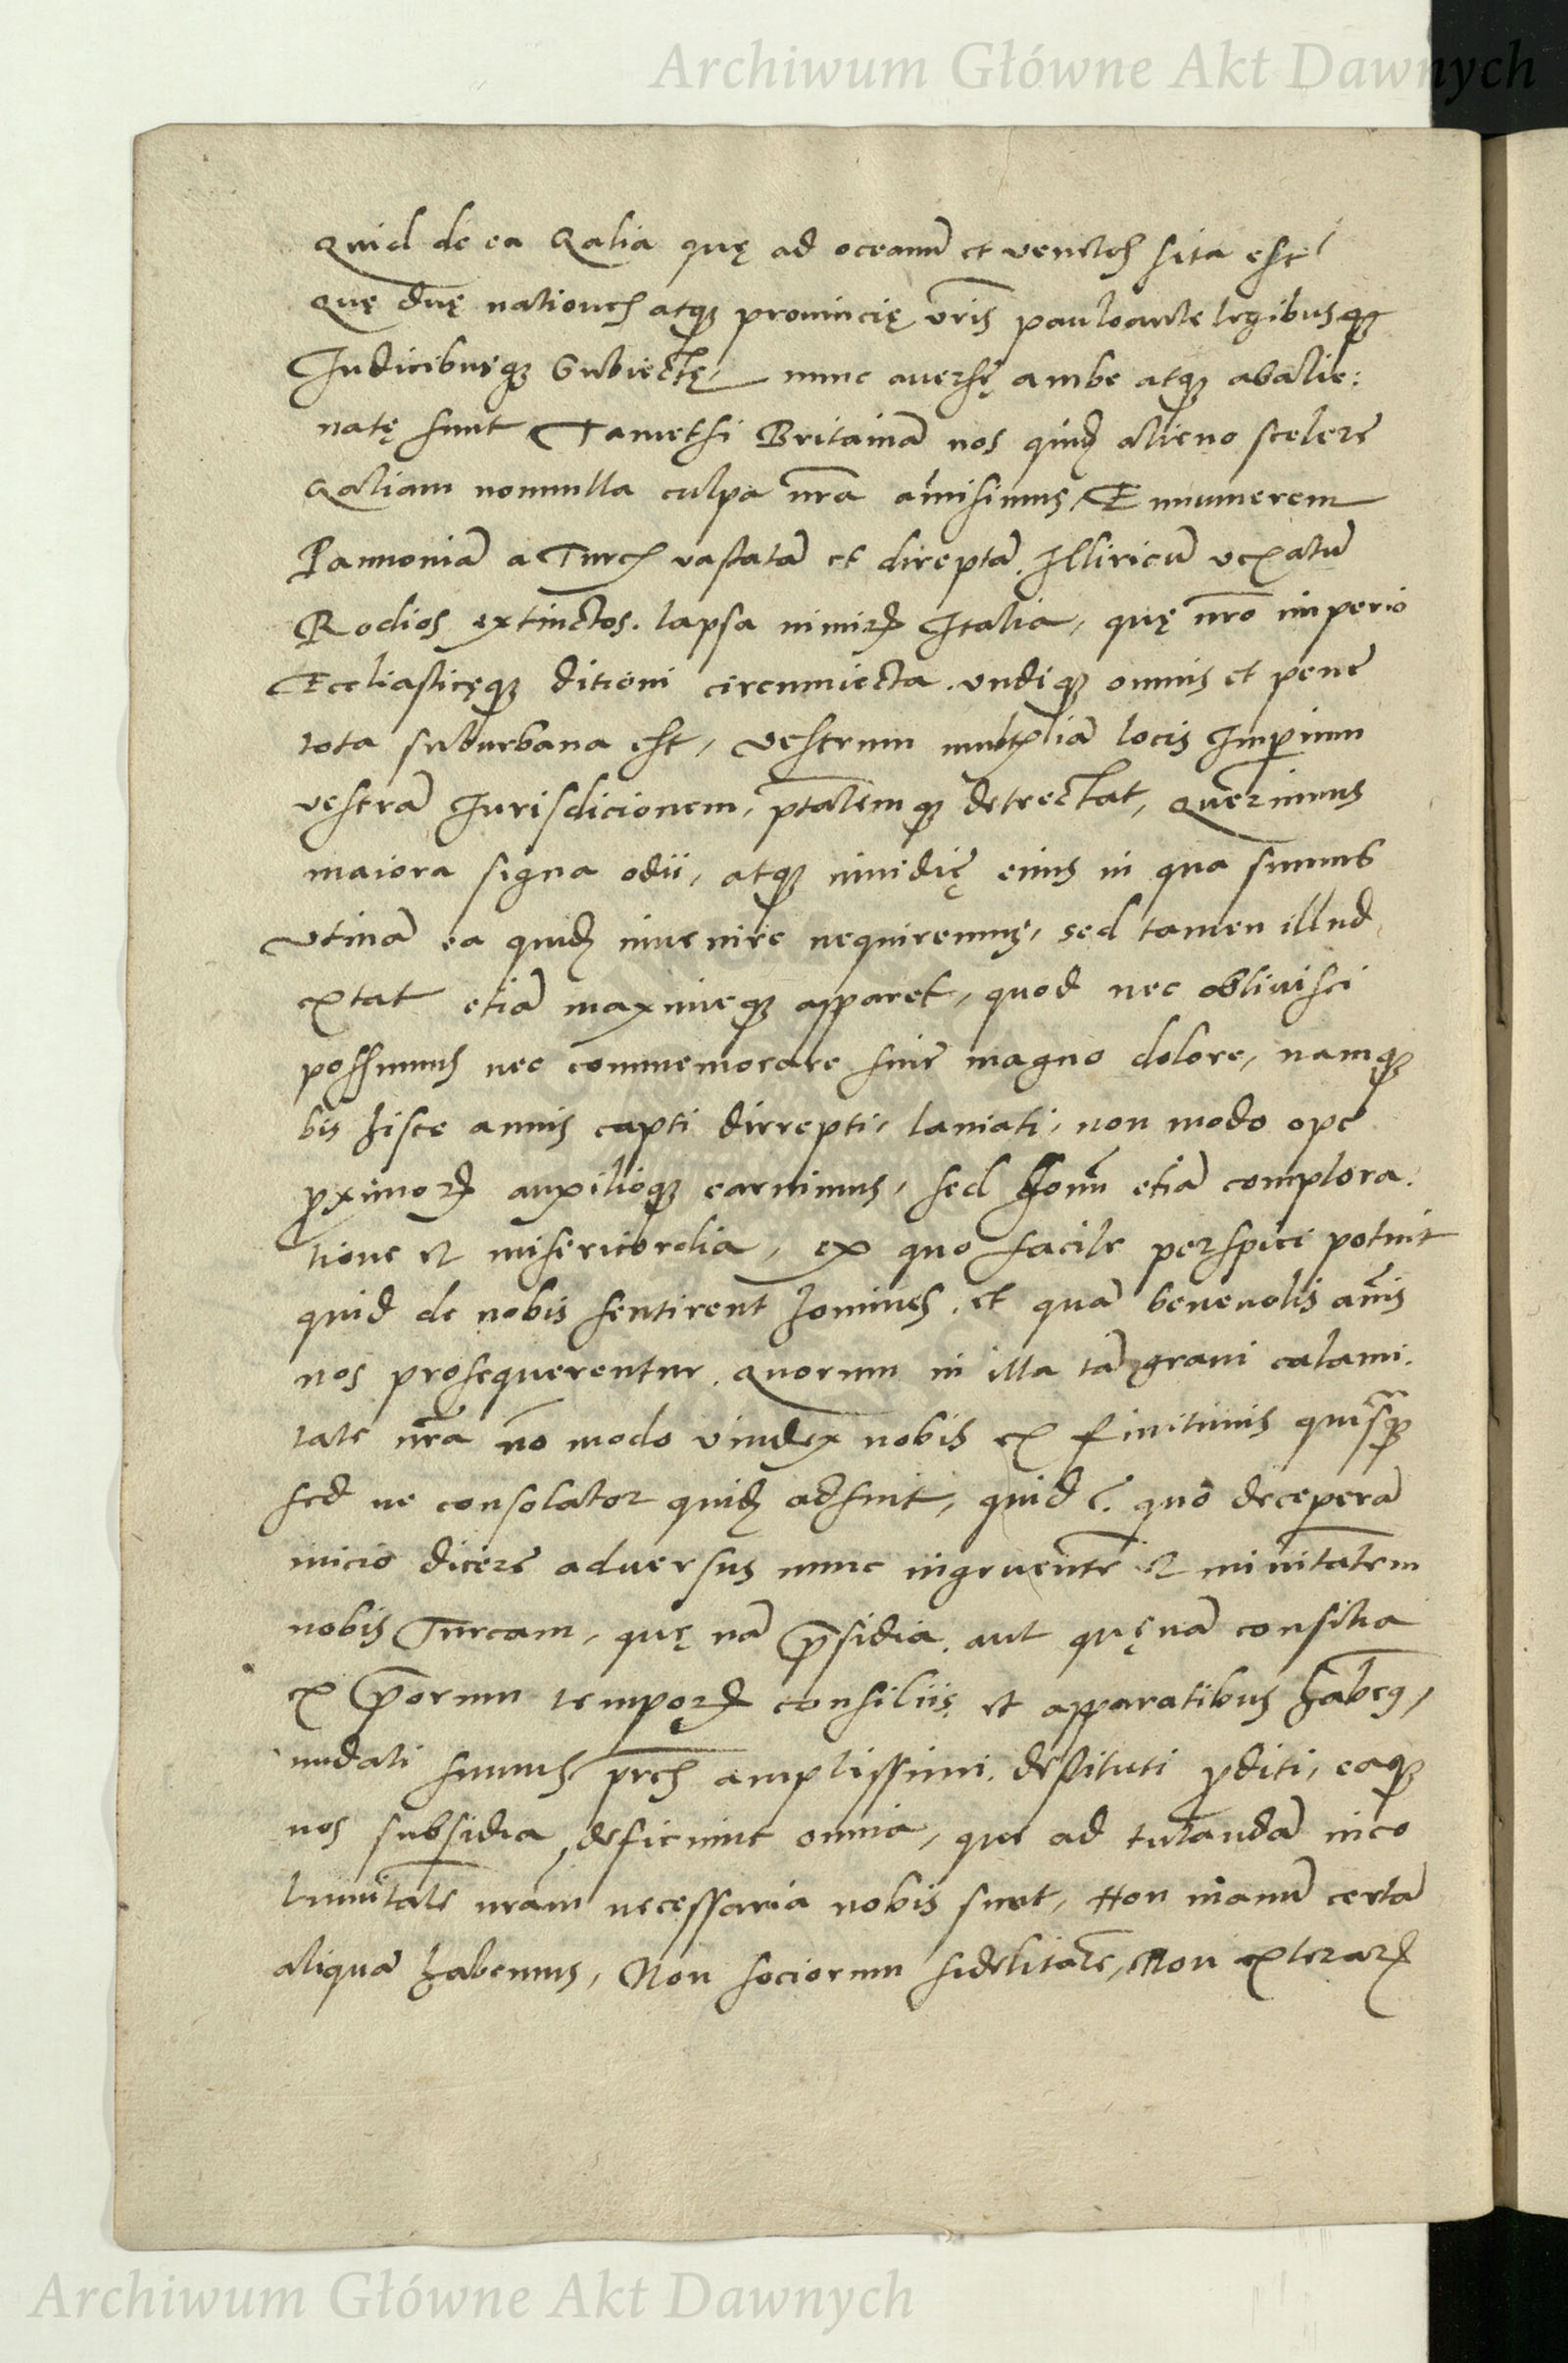 Archiwum Główne Akt Dawnych
Quid de ea Galia quę ad oceanū et venetos sita est
Quę duę nationes atq; prouincię vr̄is pauloante legibusq;
Iudicibusq; Subiectę, nunc auersę ambe atq; abalie:
natę sunt Tametsi Britaniā nos quid̄ alieno scelere
Galiam nonnulla culpa nr̄a amisimus, Enumerem
Pannoniā a Turcis vastatā et direptā. Illiricū vexatū
Rodios extinctos. lapsa nimirū Italia, quę nr̄o imperio
Eccliasticęq; ditioni circumiecta. vndiq; omnis et pene
tota suburbana est, vestrum multis iā locis Imperium
vestrā Iurisdicionem, ptātemq; detrectat, querimus
maiora signa odii, atq; inuidię eius in qua sumus
vtinā ea quid̄ inuenire nequiremus, sed tamen illud
extat etiā maximeq; apparet, quod nec obliuisci
possumus nec commemorare sine magno dolore, namq;
bis hisce annis capti dirrepti, laniati, non modo ope
proximorū auxilioq; caruimus, sed hom̄ etiā complora.
tione et misericordia, ex quo facile perspici potuit
quid de nobis sentirent homines. et quā beneuolis aīs
nos prosequerentur. quorum in illa tā graui calami.
tate nr̄a nō modo vindex nobis ex finitimis quisq̄
sed ne consolator quid̄ adfuit, quid ē. quō deceperā
inicio dicere aduersus nunc ingruentē et minitātem
nobis Turcam, quę nā p̄sidia. aut quęnā consilia
ex p̄orum temporū consiliis et apparatibus habem9,
nudati sumus prēs amplissimi. destituti proditi, eaq;
nos subsidia deficiunt omnia, que ad tutandā inco
lumitatē nr̄am necessaria nobis sunt, Non manū certā
aliquā habemus, Non sociorum fidelitatē, Non exterarū
Archiwum Główne Akt Dawnych